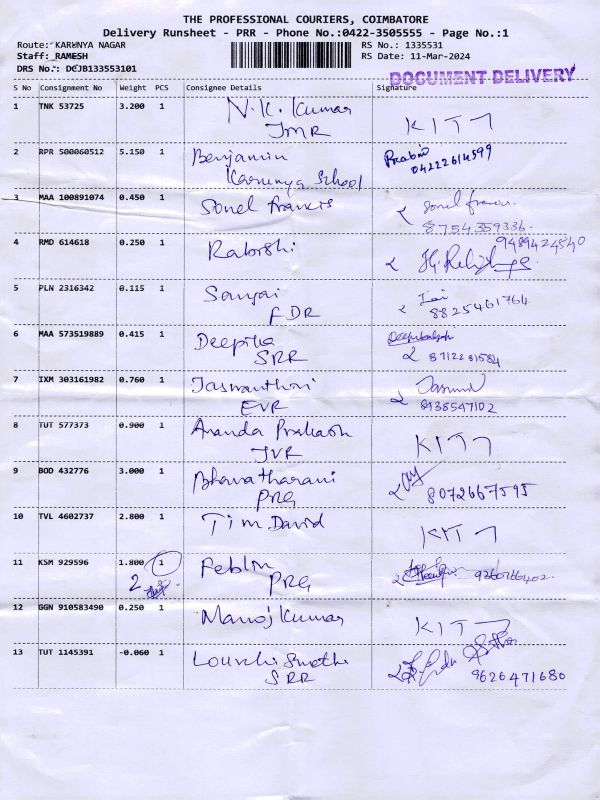 THE PROFESSIONAL COURIERS, COIMBATORE
Delivery Runsheet - PRR - Phone No.:0422-3505555 - Page No.:1
Route: KARUNYA NAGAR RS No.: 1335531
Staff: RAMESH RS Date: 11-Mar-2024
DRS No.: DCJB133553101
DOCUMENT DELIVERY
S No Consignment No Weight PCS Consignee Details Signature
1 TNK 53725 3.200 1 N.K. Kumar
JMR KITS
2 RPR 500060512 5.150 1 Benjamin
Karunya School
04222614599
3 MAA 100891074 0.450 1 Sonel Francis Sonel francis
8754359336
4 RMD 614618 0.250 1 9489424540
5 PLN 2316342 0.115 1 Sanjai
FDR
8825461764
6 MAA 573519889 0.415 1 Deepika
SRR
8712281584
7 IXM 303161982 0.760 1
EVR
8938547102
8 TUT 577373 0.900 1 Ananda Prakash
JVR KITS
9 BOD 432776 3.000 1 Bhavatharani
PRG
8072667595
10 TVL 4602737 2.800 1 Tim David KITS
11 KSM 929596 1.800 1 Feblin
2 PRG
12 GGN 910583490 0.250 1 Manoj Kumar KITS
13 TUT 1145391 -0.060 1
SRR
9626471680